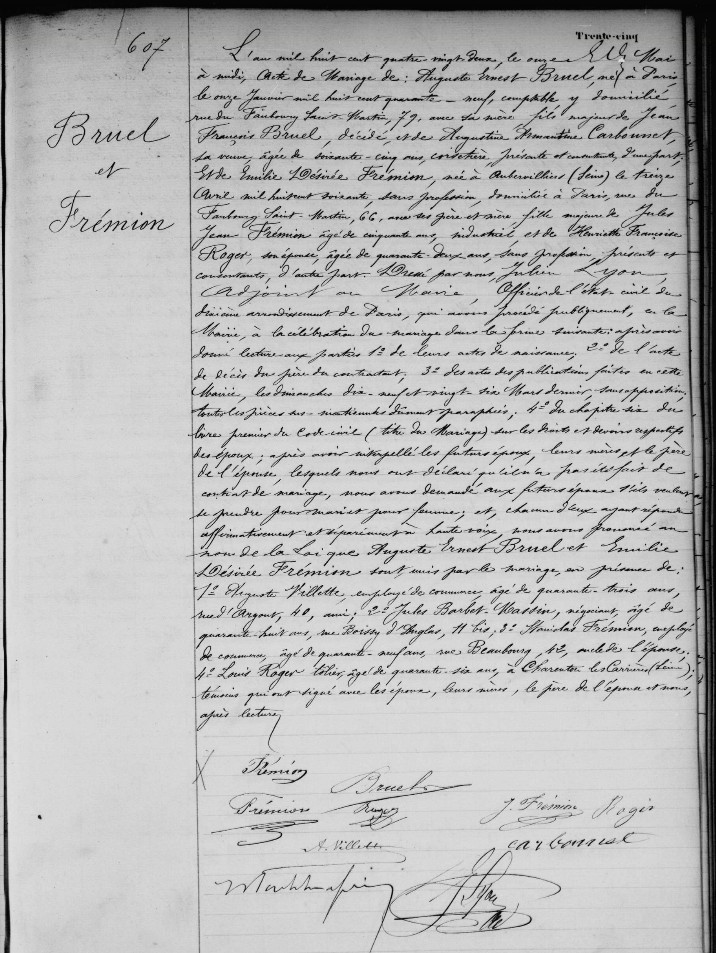 Trente-cinq
607
Bruel
et
Frémion
L'an mil huit cent quatre vingt deux, le onze Mai
à midi, Acte de Mariage de : Auguste Ernest Bruel, né à Paris
le onze Janvier mil huit cent quarante - neuf, comptable y domicilié
rue du Faubourg Saint Martin, 79, avec sa mère fils majeur de Jean
François Bruel, décédé, et de Augustine Amantine Carbonnet,
sa veuve, âgée de soixante-cinq ans, corsetière, présente et consentante, d'une part.
Et de Emilie Désirée Frémion, née à Aubervilliers (Seine) le treize
Avril mil huit cent soixante, sans profession, domiciliée à Paris, rue du
Faubourg Saint-Martin, 66, avec ses père et mère fille majeure de Jules
Jean Frémion âgé de cinquante ans, industriel, et de Henriette Françoise
Roger, son épouse, âgée de quarante-deux ans, sans profession, présents et
consentants, d'autre part. Dressé par nous, Julien Lyon,
Adjoint au Maire, Officier de l'état-civil du
dixième arrondissement de Paris, qui avons procédé publiquement, en la
Mairie, à la célébration du mariage dans la forme suivante : après avoir
donné lecture aux parties 1º de leurs actes de naissance, 2º de l'acte
de décès du père du contractant, 3º des actes des publications faites en cette
Mairie, les dimanches dix-neuf et vingt-six Mars dernier, sans opposition,
toutes les pièces sus-mentionnées dûment paraphées ; 4º du chapitre six du
livre premier du Code-civil (titre du Mariage) sur les droits et devoirs respectifs
des époux ; après avoir interpellé les futurs époux, leurs mères et le père
de l'épouse, lesquels nous ont déclaré qu'il n'a pas été fait de
contrat de mariage, nous avons demandé aux futurs époux s'ils veulent
se prendre pour mari et pour femme ; et, chacun d'eux ayant répondu
affirmativement et séparément à haute voix, nous avons prononcé au
nom de la Loi que Auguste Ernest Bruel et Emilie
Désirée Frémion sont unis par le mariage, en présence de :
1º Auguste Villette, employé de commerce, âgé de quarante-trois ans,
rue d'Argout, 40, ami ; 2º Jules Barbot-Massin, négociant, âgé de
quarante-huit ans, rue Boissy d'Anglas, 11 bis ; 3º Stanislas Frémion, employé
de commerce, âgé de quarante-neuf ans, rue Beaubourg, 42, oncle de l'épouse ;
4º Louis Roger tôlier, âgé de quarante-six ans, à Charenton les Carrières (Seine) ;
témoins qui ont signé avec les époux, leurs mères, le père de l'épouse et nous,
après lecture
Frémion
Bruel
Frémion Roger J. Frémion Roger
A. Villette carbonnet
J. Lyon